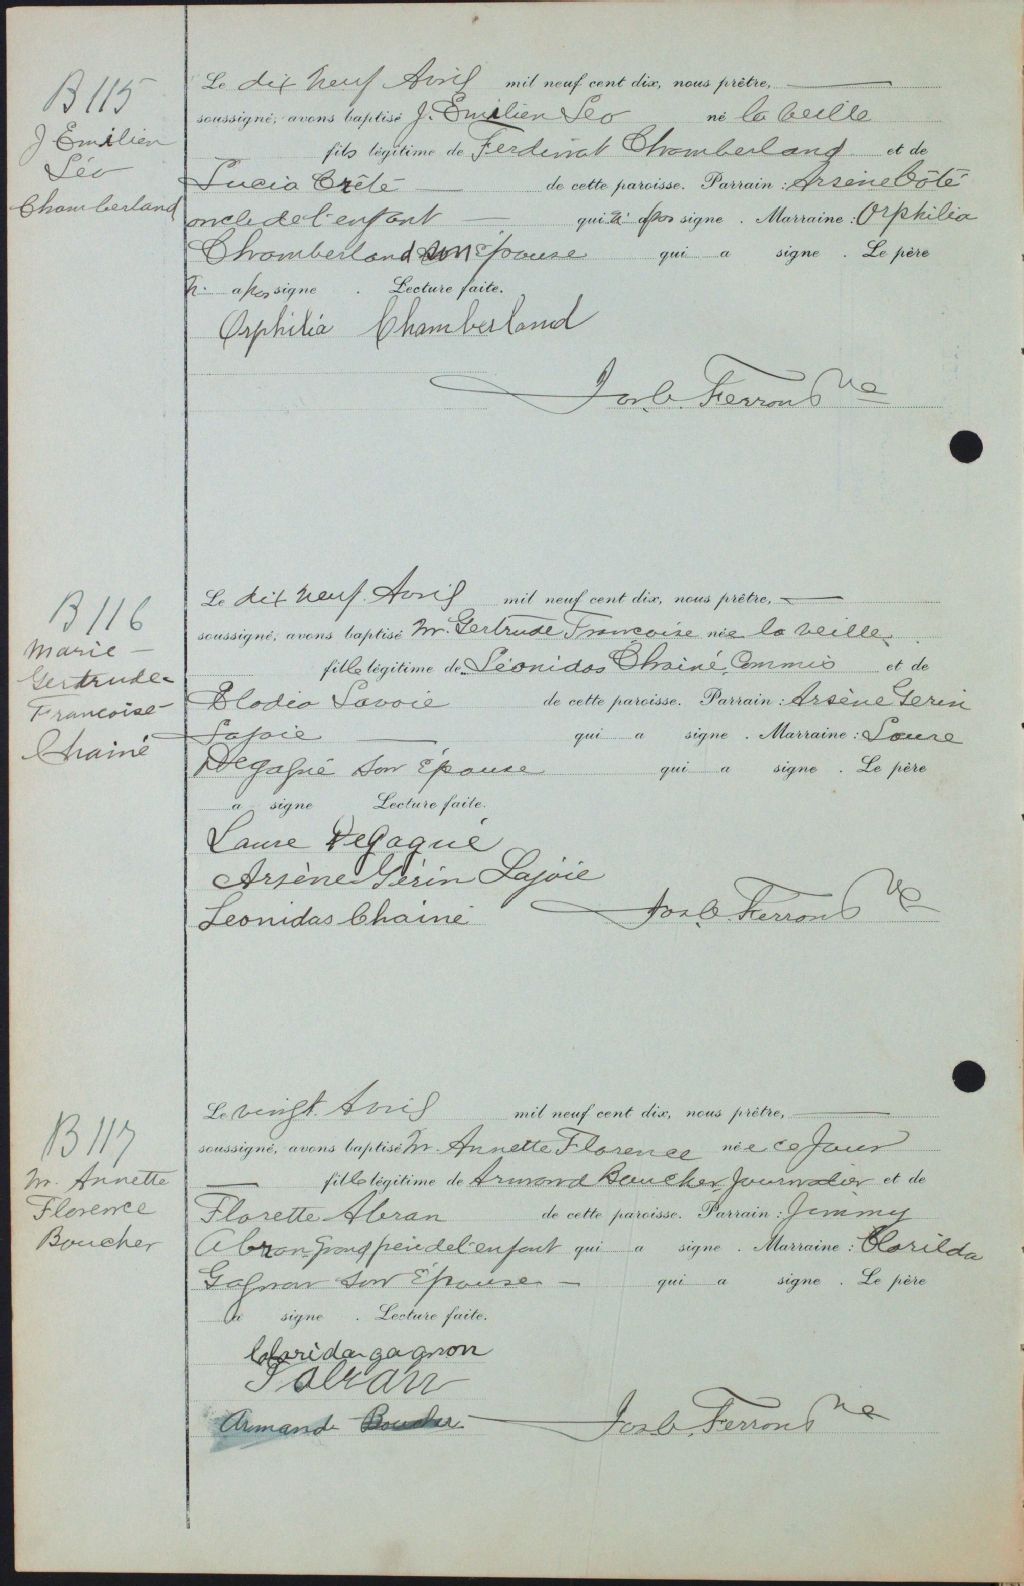 B 115
J Emilien
Léo
Chamberland
Le dix neuf Avril mil neuf cent dix, nous prêtre,
soussigné, avons baptisé J. Emilien Léo né la veille
fils légitime de Ferdinat Chamberland et de
Lucia Crêté de cette paroisse. Parrain : Arsène Côté
oncle de l'enfant qui n' a pas signe . Marraine : Orphilia
Chamberland son épouse qui a signe . Le père
n' a pas signe . Lecture faite.
Orphilia Chamberland
Jos. C. Ferron Vic
B 116
Marie -
Gertrude -
Francoise -
Chainé
Le dix neuf Avril mil neuf cent dix, nous prêtre,
soussigné, avons baptisé M. Gertrude Françoise née la veille
fille légitime de Léonidas Chainé Commis et de
Elodia Lavoie de cette paroisse. Parrain : Arsène Gerin
Lajoie qui a signe . Marraine : Laure
Degagné son Épouse qui a signe . Le père
a signe Lecture faite.
Laure DeGagné
Arsène Gérin Lajoie
Leonidas Chainé
Jos. C. Ferron Vic
B 117
M. Annette
Florence
Boucher
Le vingt Avril mil neuf cent dix, nous prêtre,
soussigné, avons baptisé M. Annette Florence née ce Jour
fille légitime de Armand Boucher, Journalier et de
Florette Abran de cette paroisse. Parrain : Jimmy
Abran Grand père de l'enfant qui a signe . Marraine : Clorilda
Gagnon son Épouse - qui a signe . Le père
a signe . Lecture faite.
Clorida gagnon
J abran
Armande Boucher
Jos. C. Ferron Vic